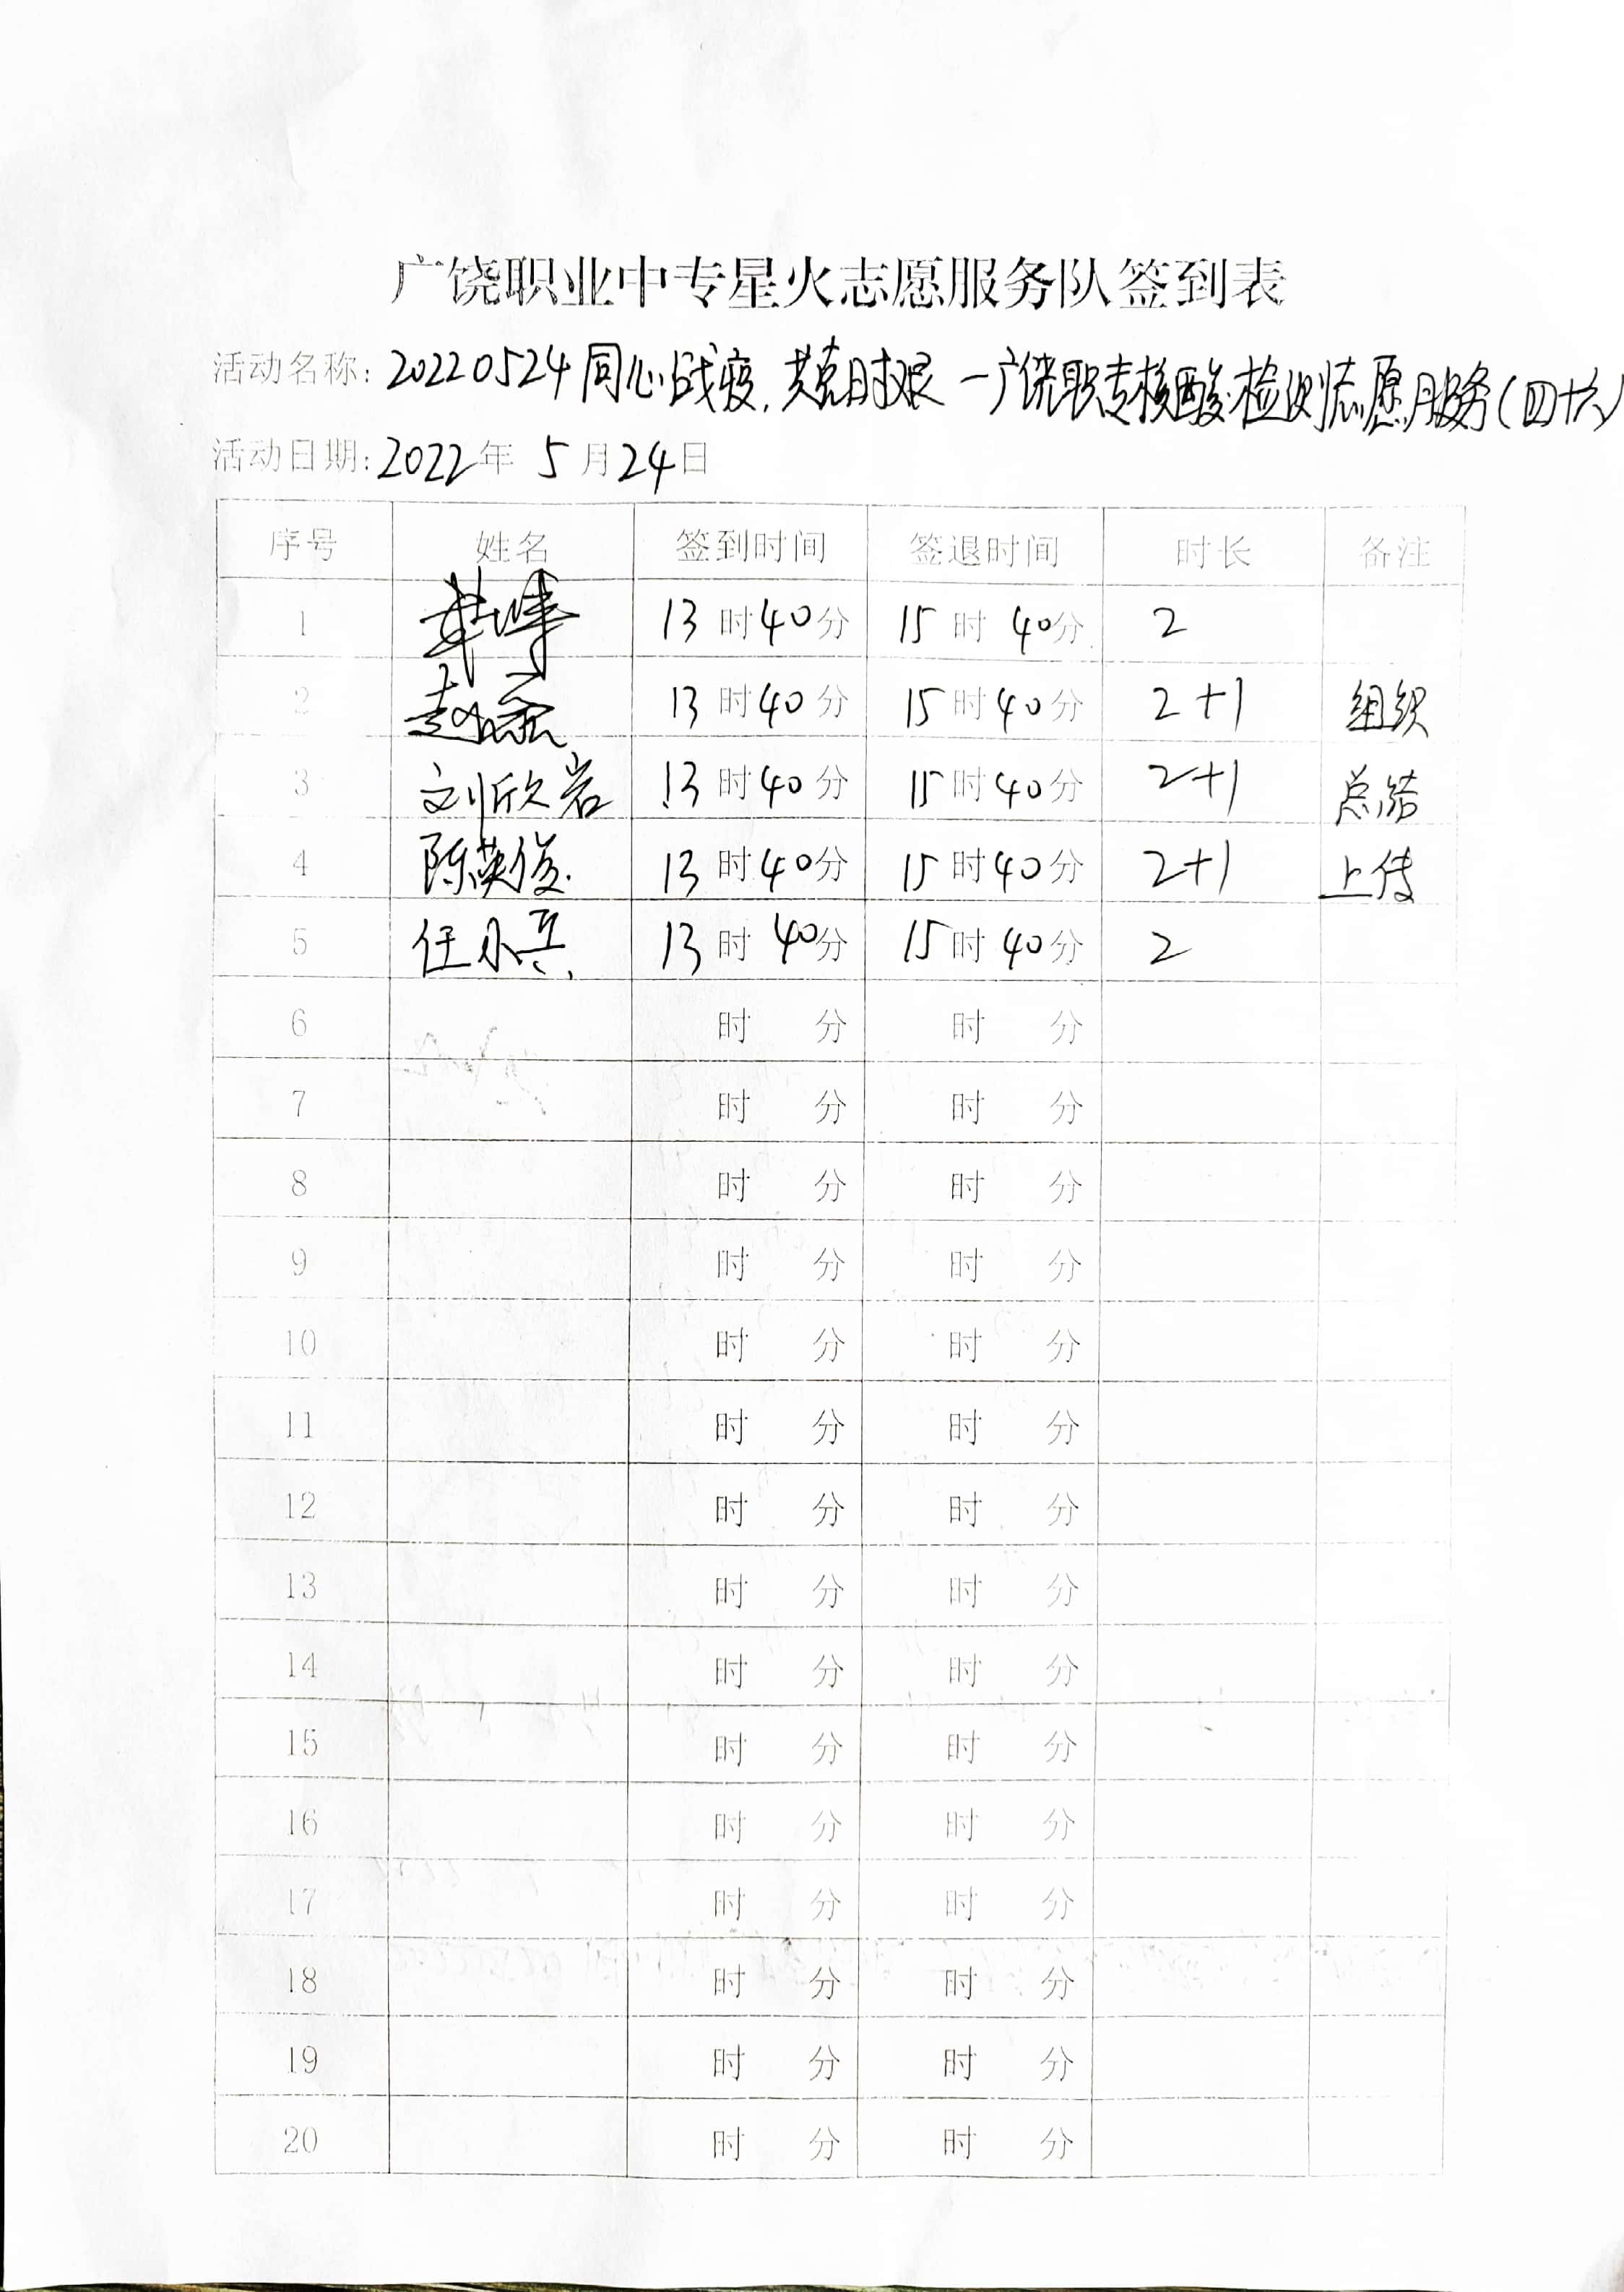 广饶职业中专星火志愿服务队签到表
活动名称: 20220524同心战疫,共克时艰—广饶职专核酸检测志愿服务(四十六)
活动日期: 2022年 5月24日
序号 姓名 签到时间 签退时间 时长 备注
1 13时40分 15时40分 2
2 赵 13时40分 15时40分 2+1 组织
3 刘欣岩 13时40分 15时40分 2+1 总结
4 陈英俊 13时40分 15时40分 2+1 上传
5 任小兵 13时40分 15时40分 2
6 时 分 时 分
7 时 分 时 分
8 时 分 时 分
9 时 分 时 分
10 时 分 时 分
11 时 分 时 分
12 时 分 时 分
13 时 分 时 分
14 时 分 时 分
15 时 分 时 分
16 时 分 时 分
17 时 分 时 分
18 时 分 时 分
19 时 分 时 分
20 时 分 时 分